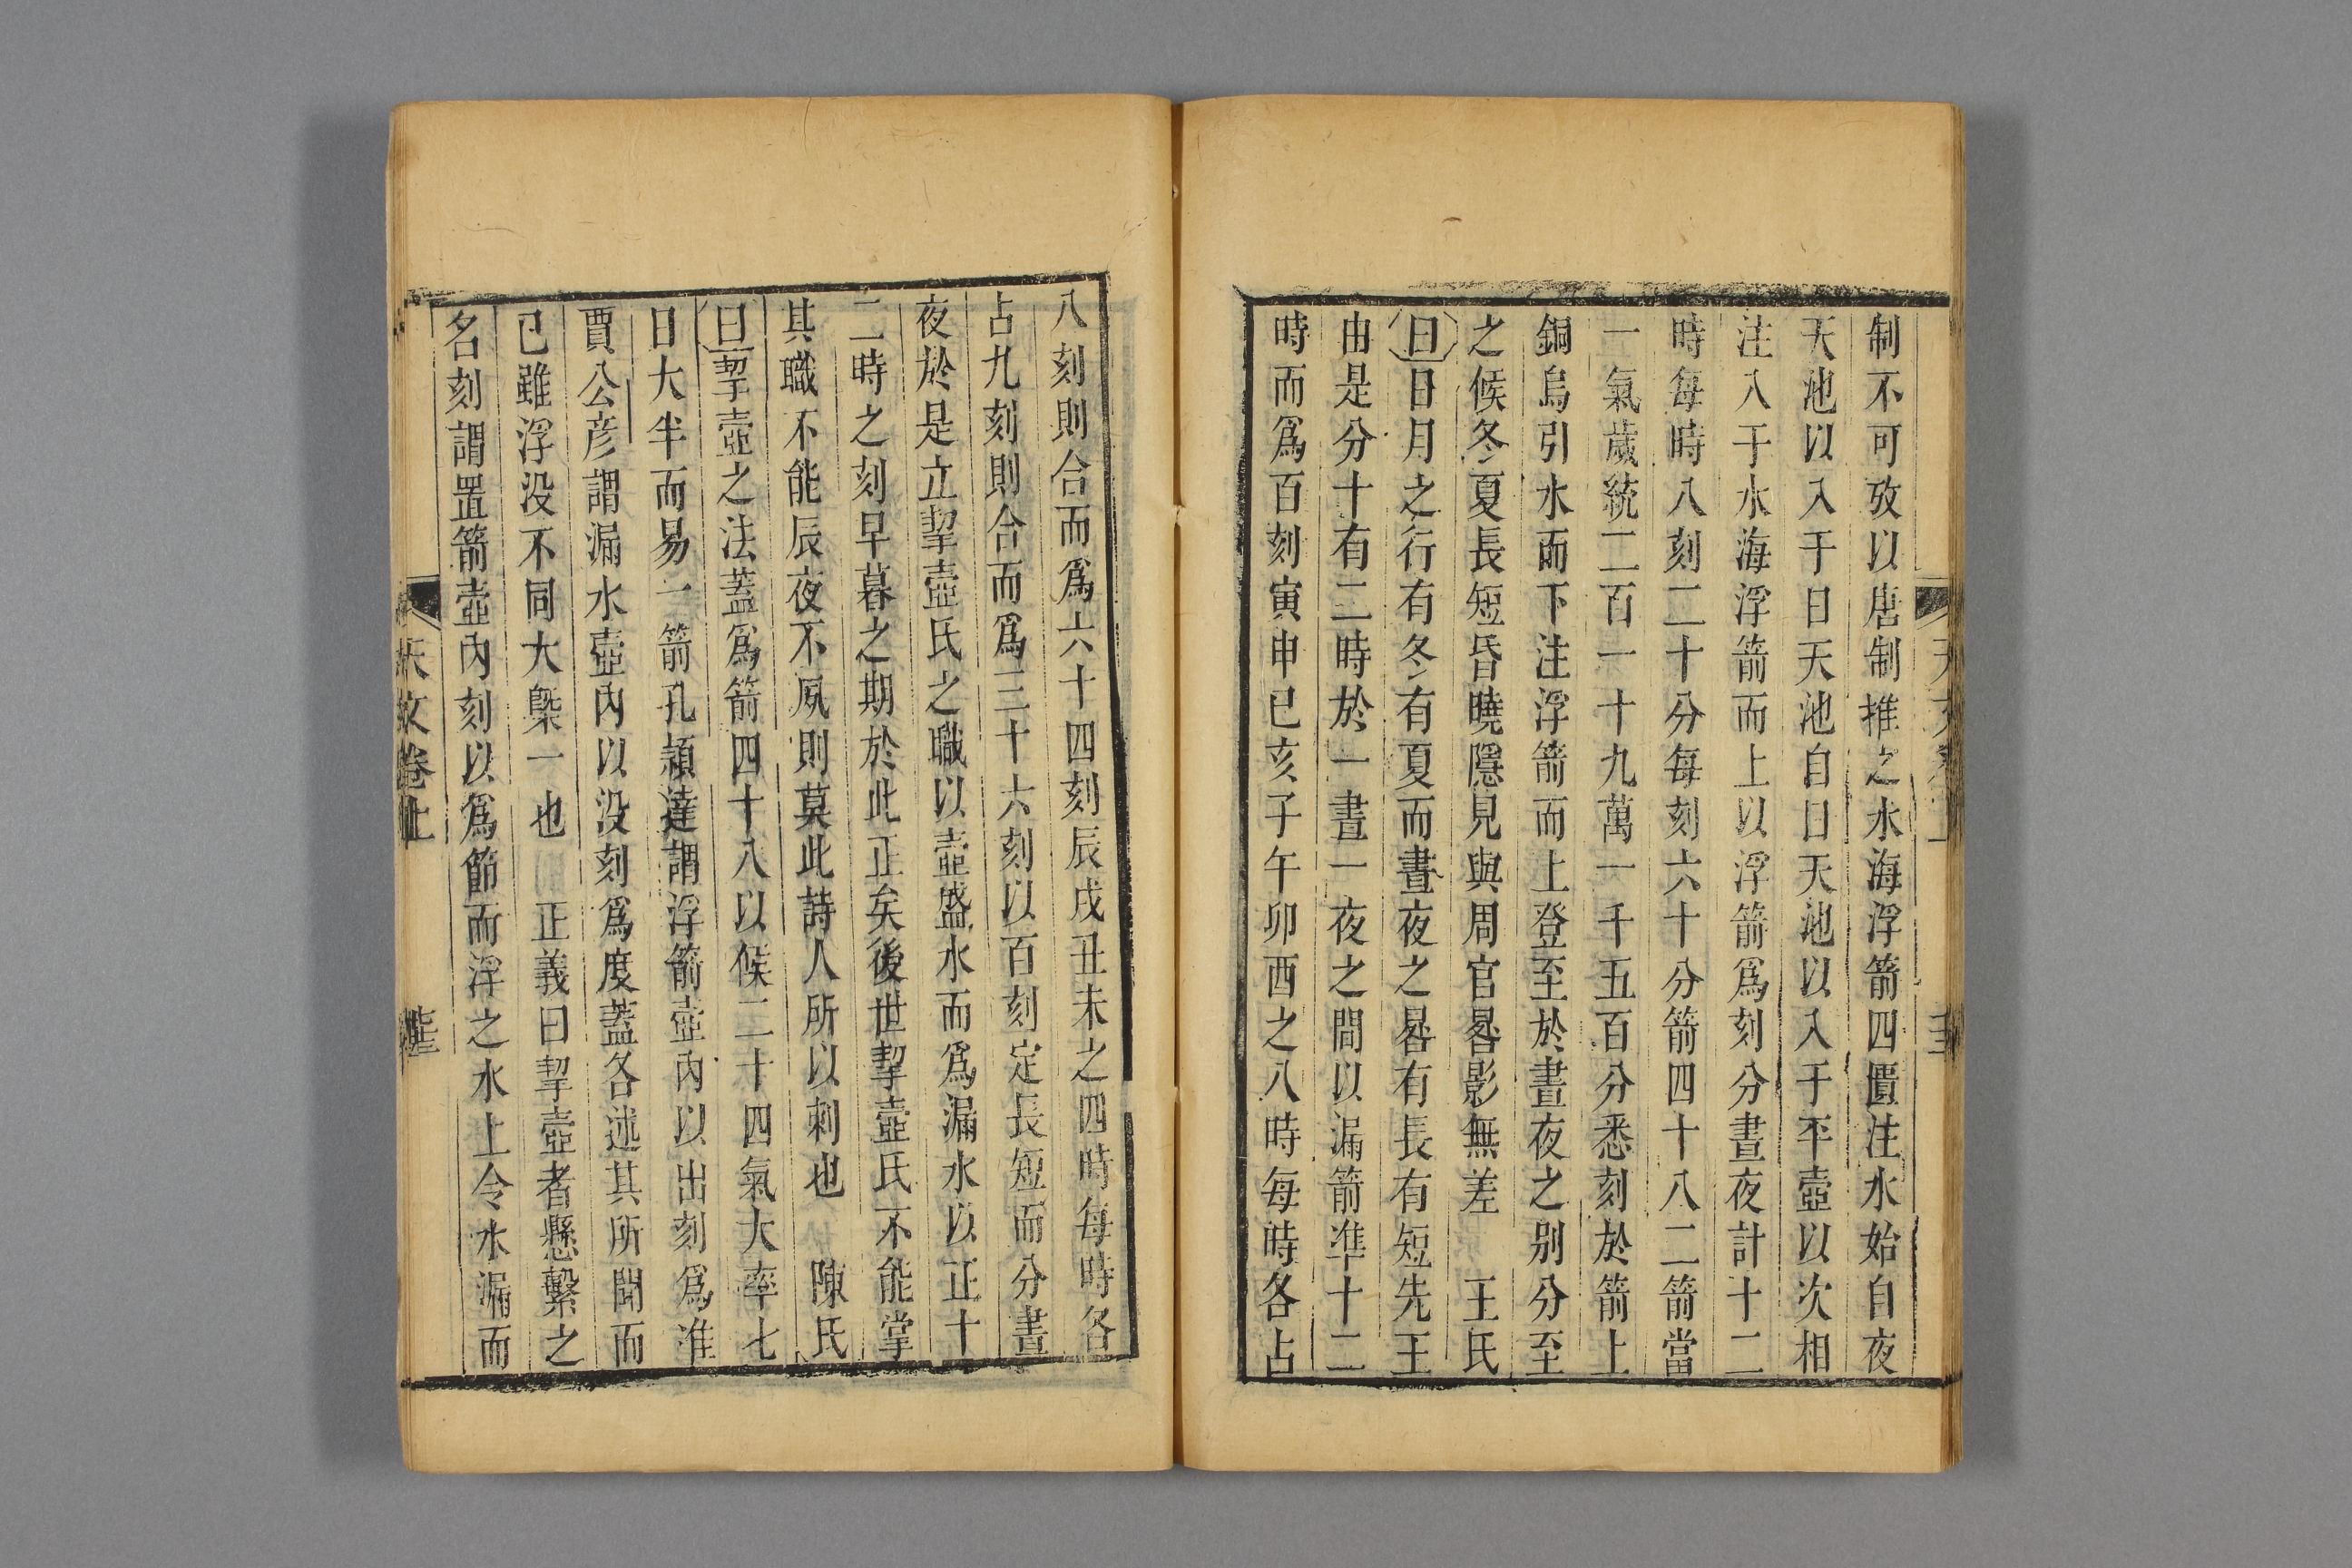 制不可攷以唐制推之水海浮箭四匱注水始自夜
天池以入于日天池自日天池以入于平壺以次相
注入于水海浮箭而上以浮箭爲刻分晝夜計十二
時每時八刻二十分每刻六十分箭四十八二箭當
一氣歲統二百一十九萬一千五百分悉刻於箭上
銅烏引水而下注浮箭而上登至於晝夜之别分至
之候冬夏長短昏曉隱見與周官晷影無差　王氏
曰日月之行有冬有夏而晝夜之晷有長有短先王
由是分十有二時於一晝一夜之間以漏箭準十二
時而爲百刻寅申巳亥子午卯酉之八時每時各占
八刻則合而爲六十四刻辰戌丑未之四時每時各
占九刻則合而爲三十六刻以百刻定長短而分晝
夜於是立挈壺氏之職以壺盛水而爲漏水以正十
二時之刻早暮之期於此正矣後世挈壺氏不能掌
其職不能辰夜不夙則莫此詩人所以刺也　陳氏
曰挈壺之法蓋爲箭四十八以候二十四氣大率七
日大半而易一箭孔頴達謂浮箭壺內以出刻爲准
賈公彦謂漏水壺內以没刻爲度蓋各述其所聞而
已雖浮没不同大槩一也　正義曰挈壺者懸繫之
名刻謂置箭壺內刻以爲節而浮之水上令水漏而
天文卷上